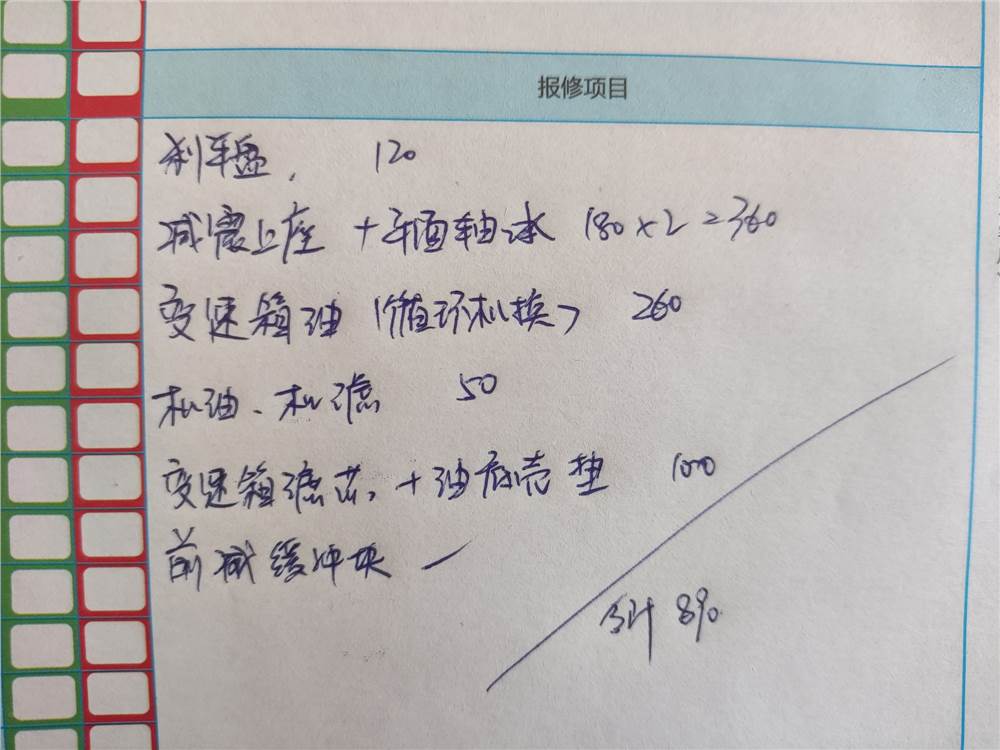 报修项目
刹车盘, 120
减震上座 + 平面轴承 180×2=360
变速箱油(循环机换) 260
机油、机滤 50
变速箱滤芯 + 油底壳垫 100
前减缓冲块 —
合计 890